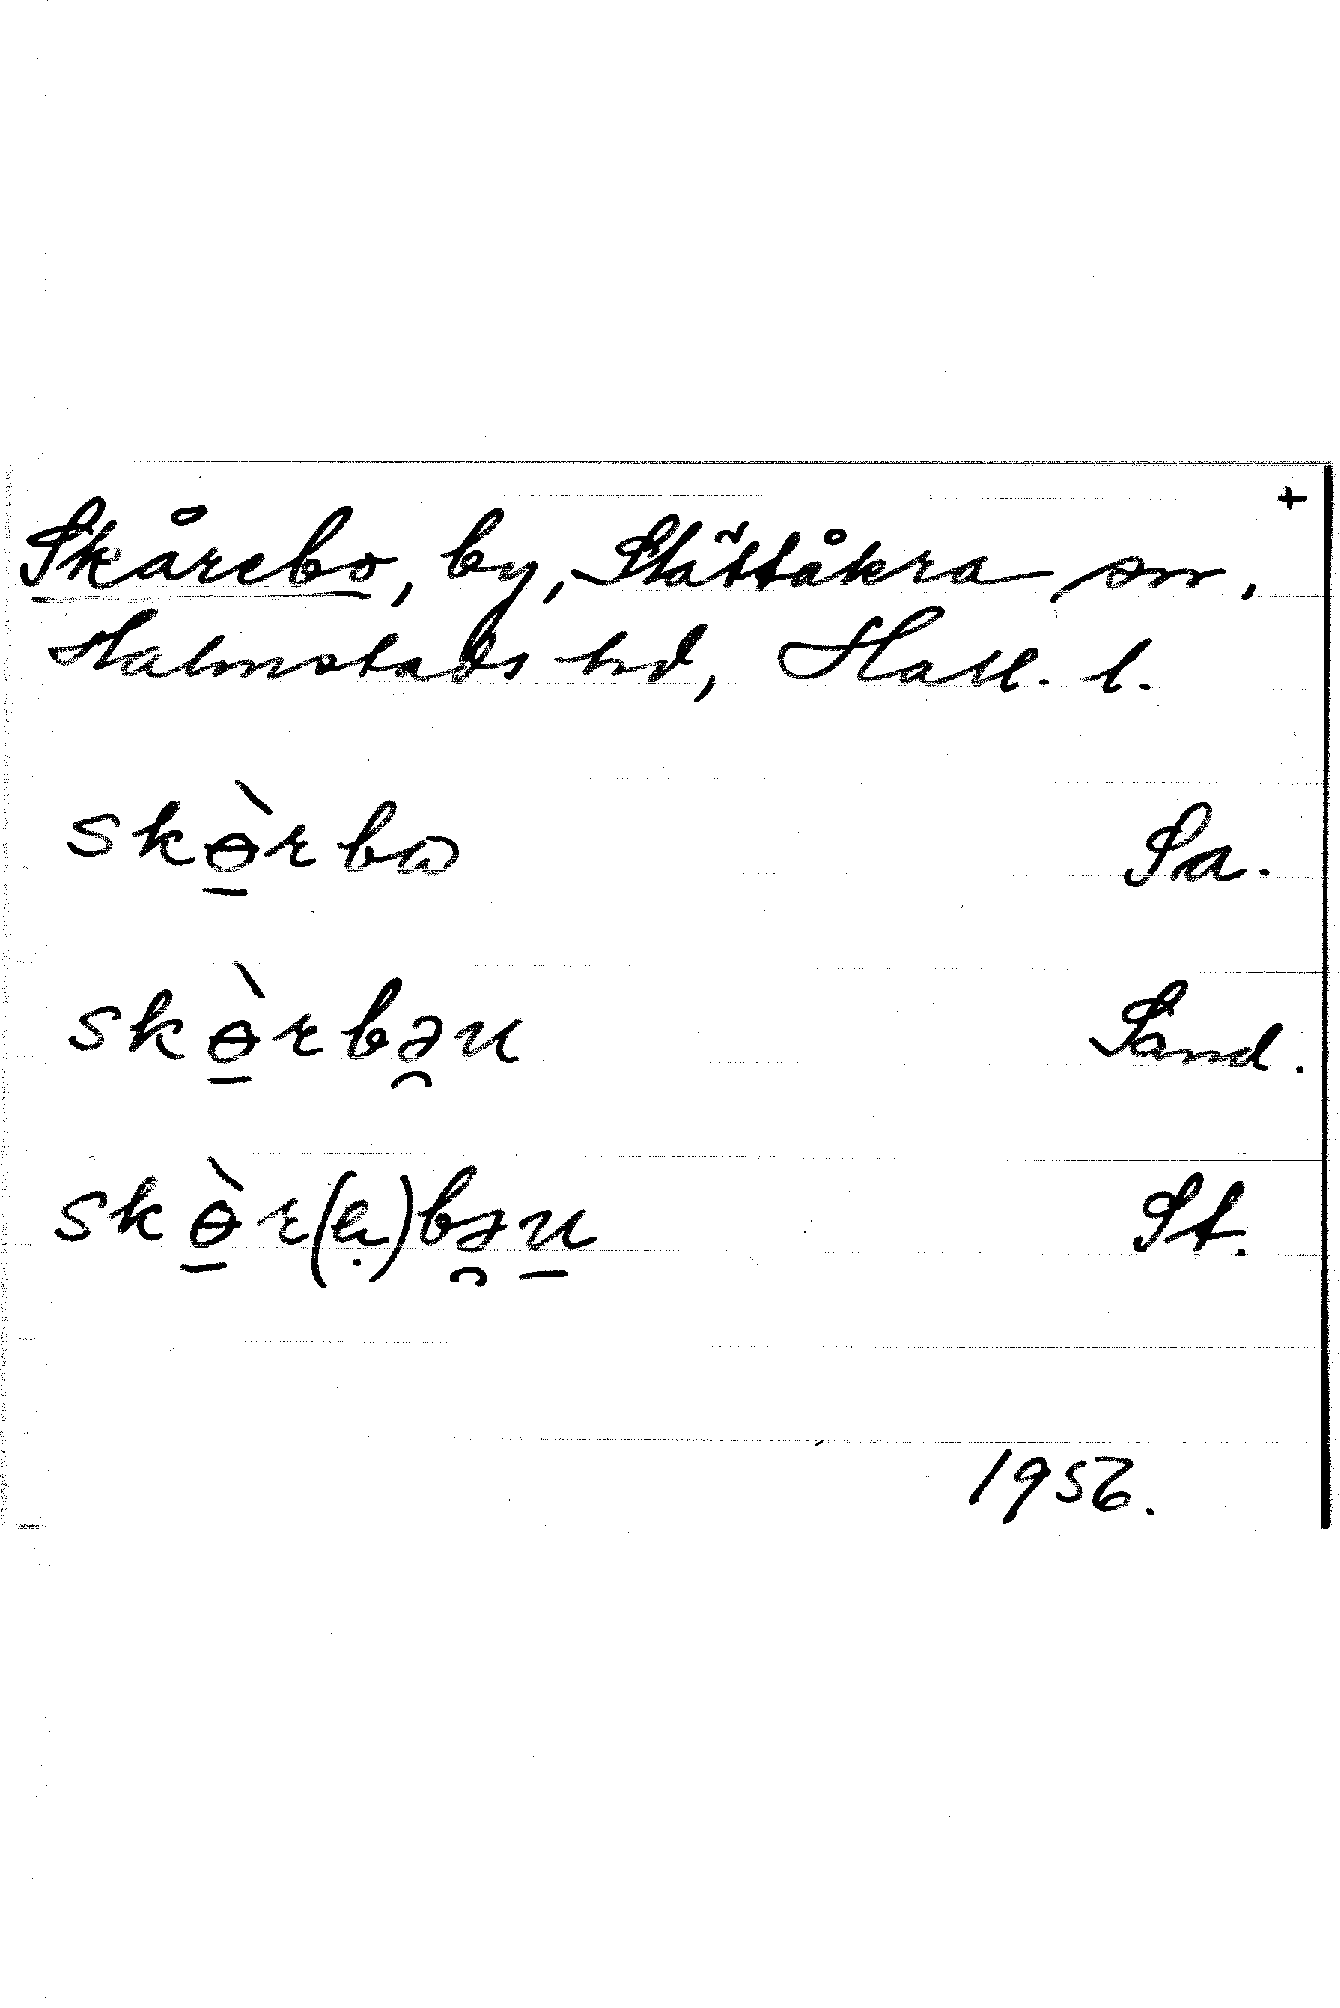 +
Skårebo, by, Slättåkra sn,
Halmstads hd, Hall. l.
skɵ̠̀rbɷ Sa.
skɵ̠̀rbə̯u Sand.
skɵ̠̀r(ạ)bə̯u̠ St.
1956.